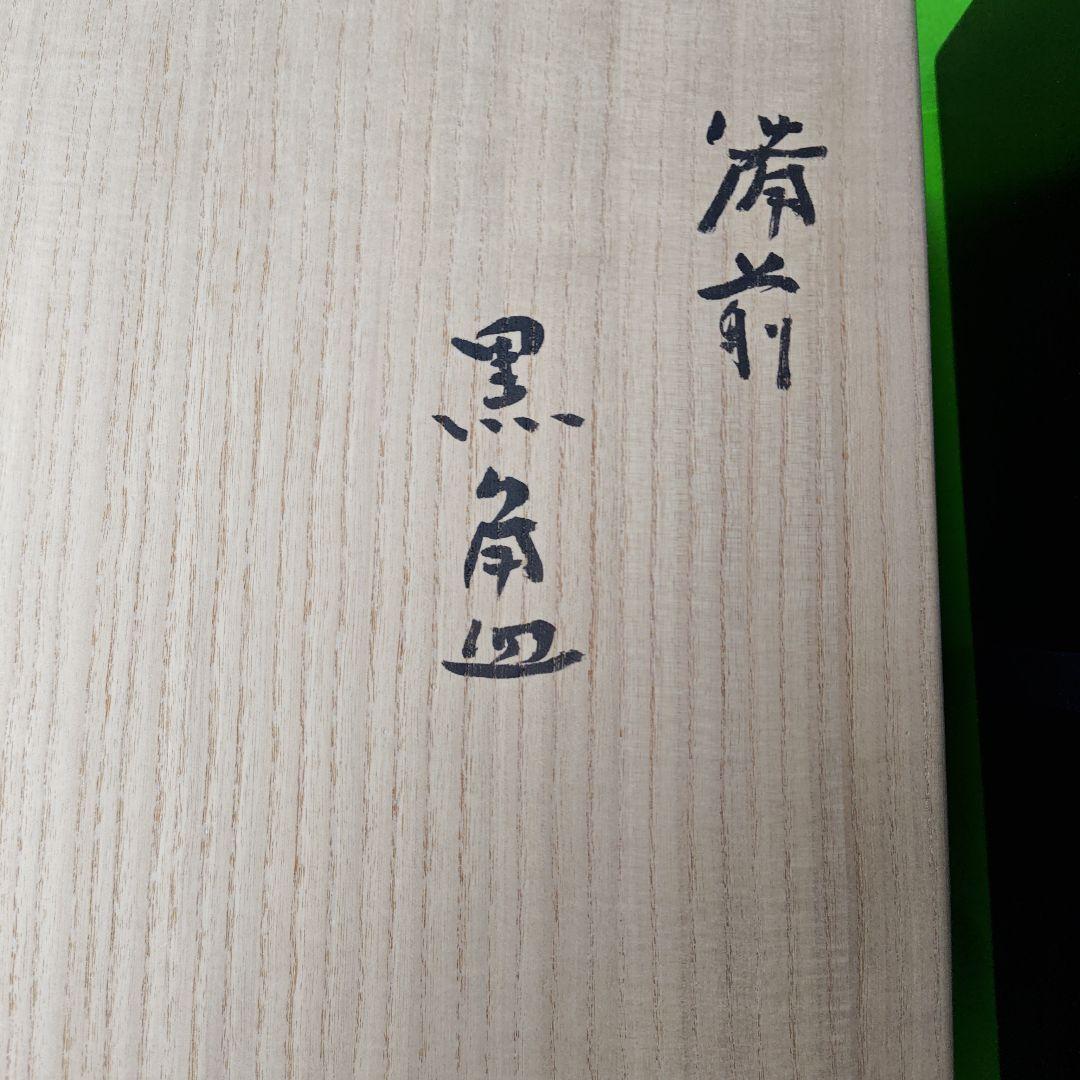 備前
黒角皿